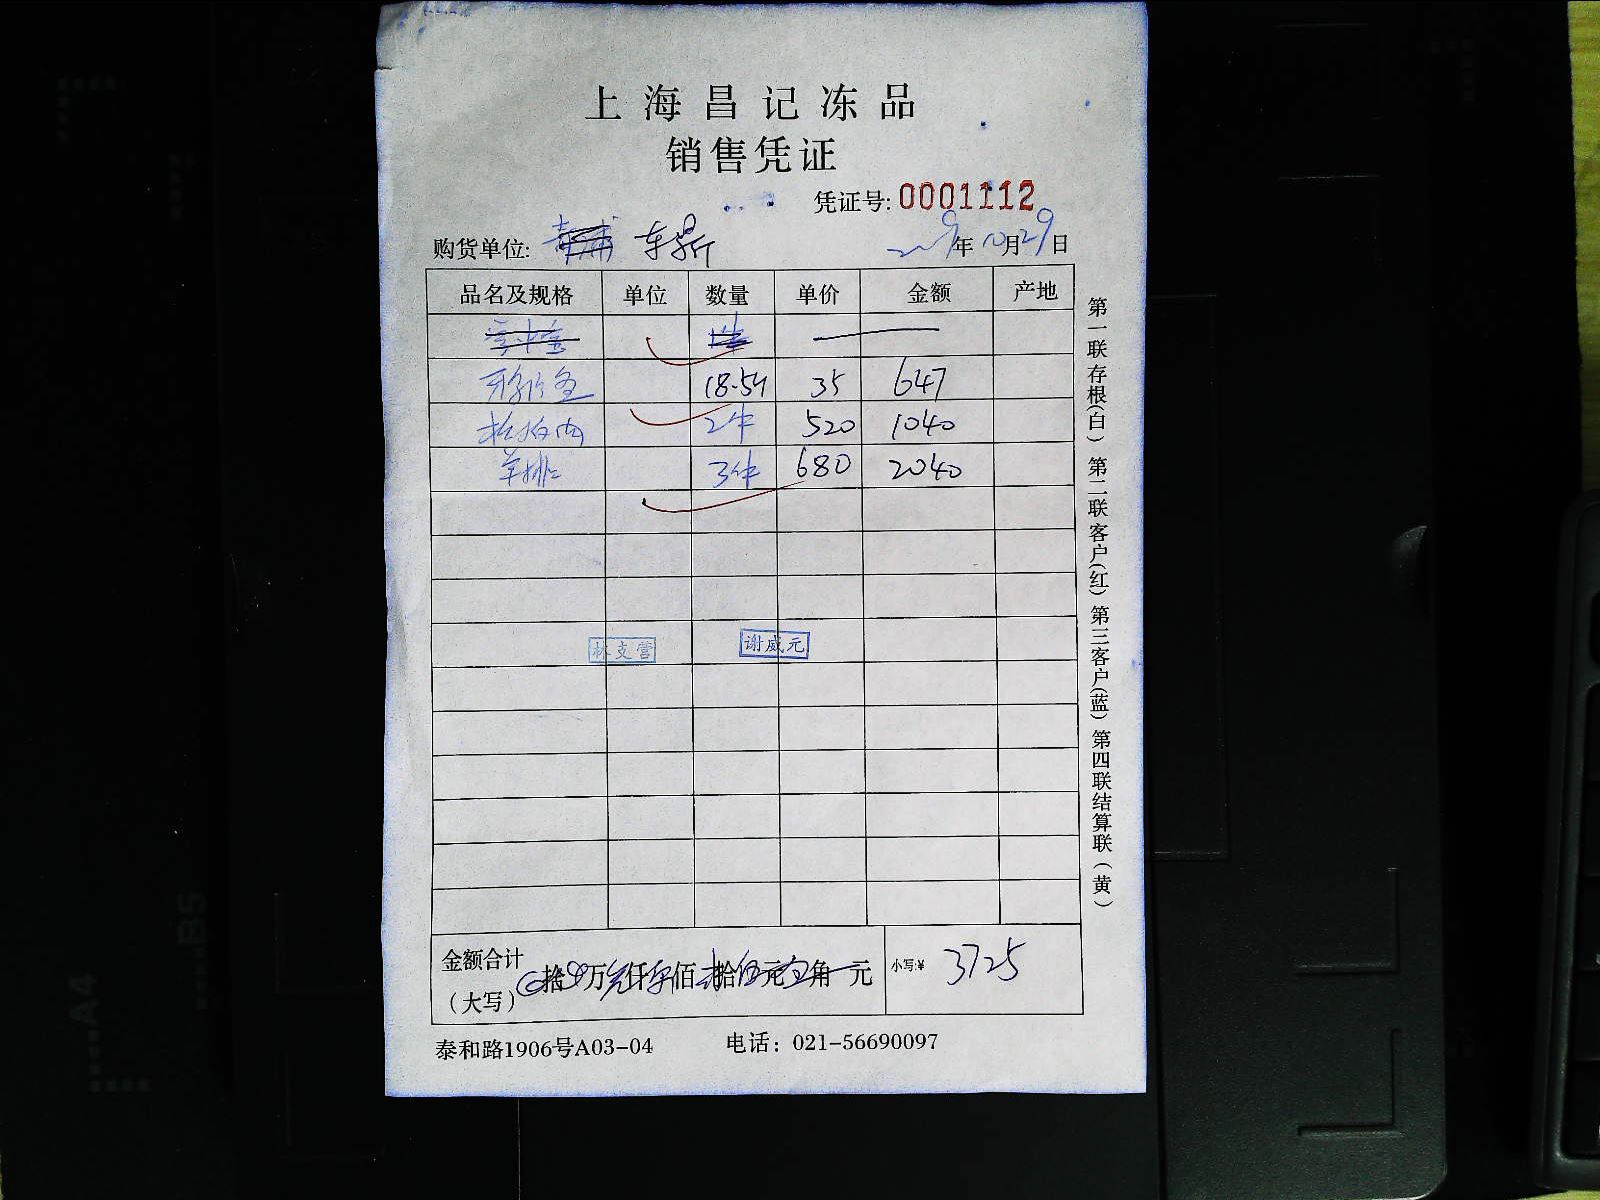 上海昌记冻品
销售凭证
凭证号: 0001112
购货单位: 东景
年10月29日
品名及规格 单位 数量 单价 金额 产地
35 647
2件 520 1040
羊排 3件 680 2040
林支营 谢威元
金额合计
(大写) 拾 万 仟 佰 拾 元 角 元 小写:¥ 3725
泰和路1906号A03-04 电话: 021-56690097
第一联存根(白) 第二联客户(红) 第三客户(蓝) 第四联结算联(黄)